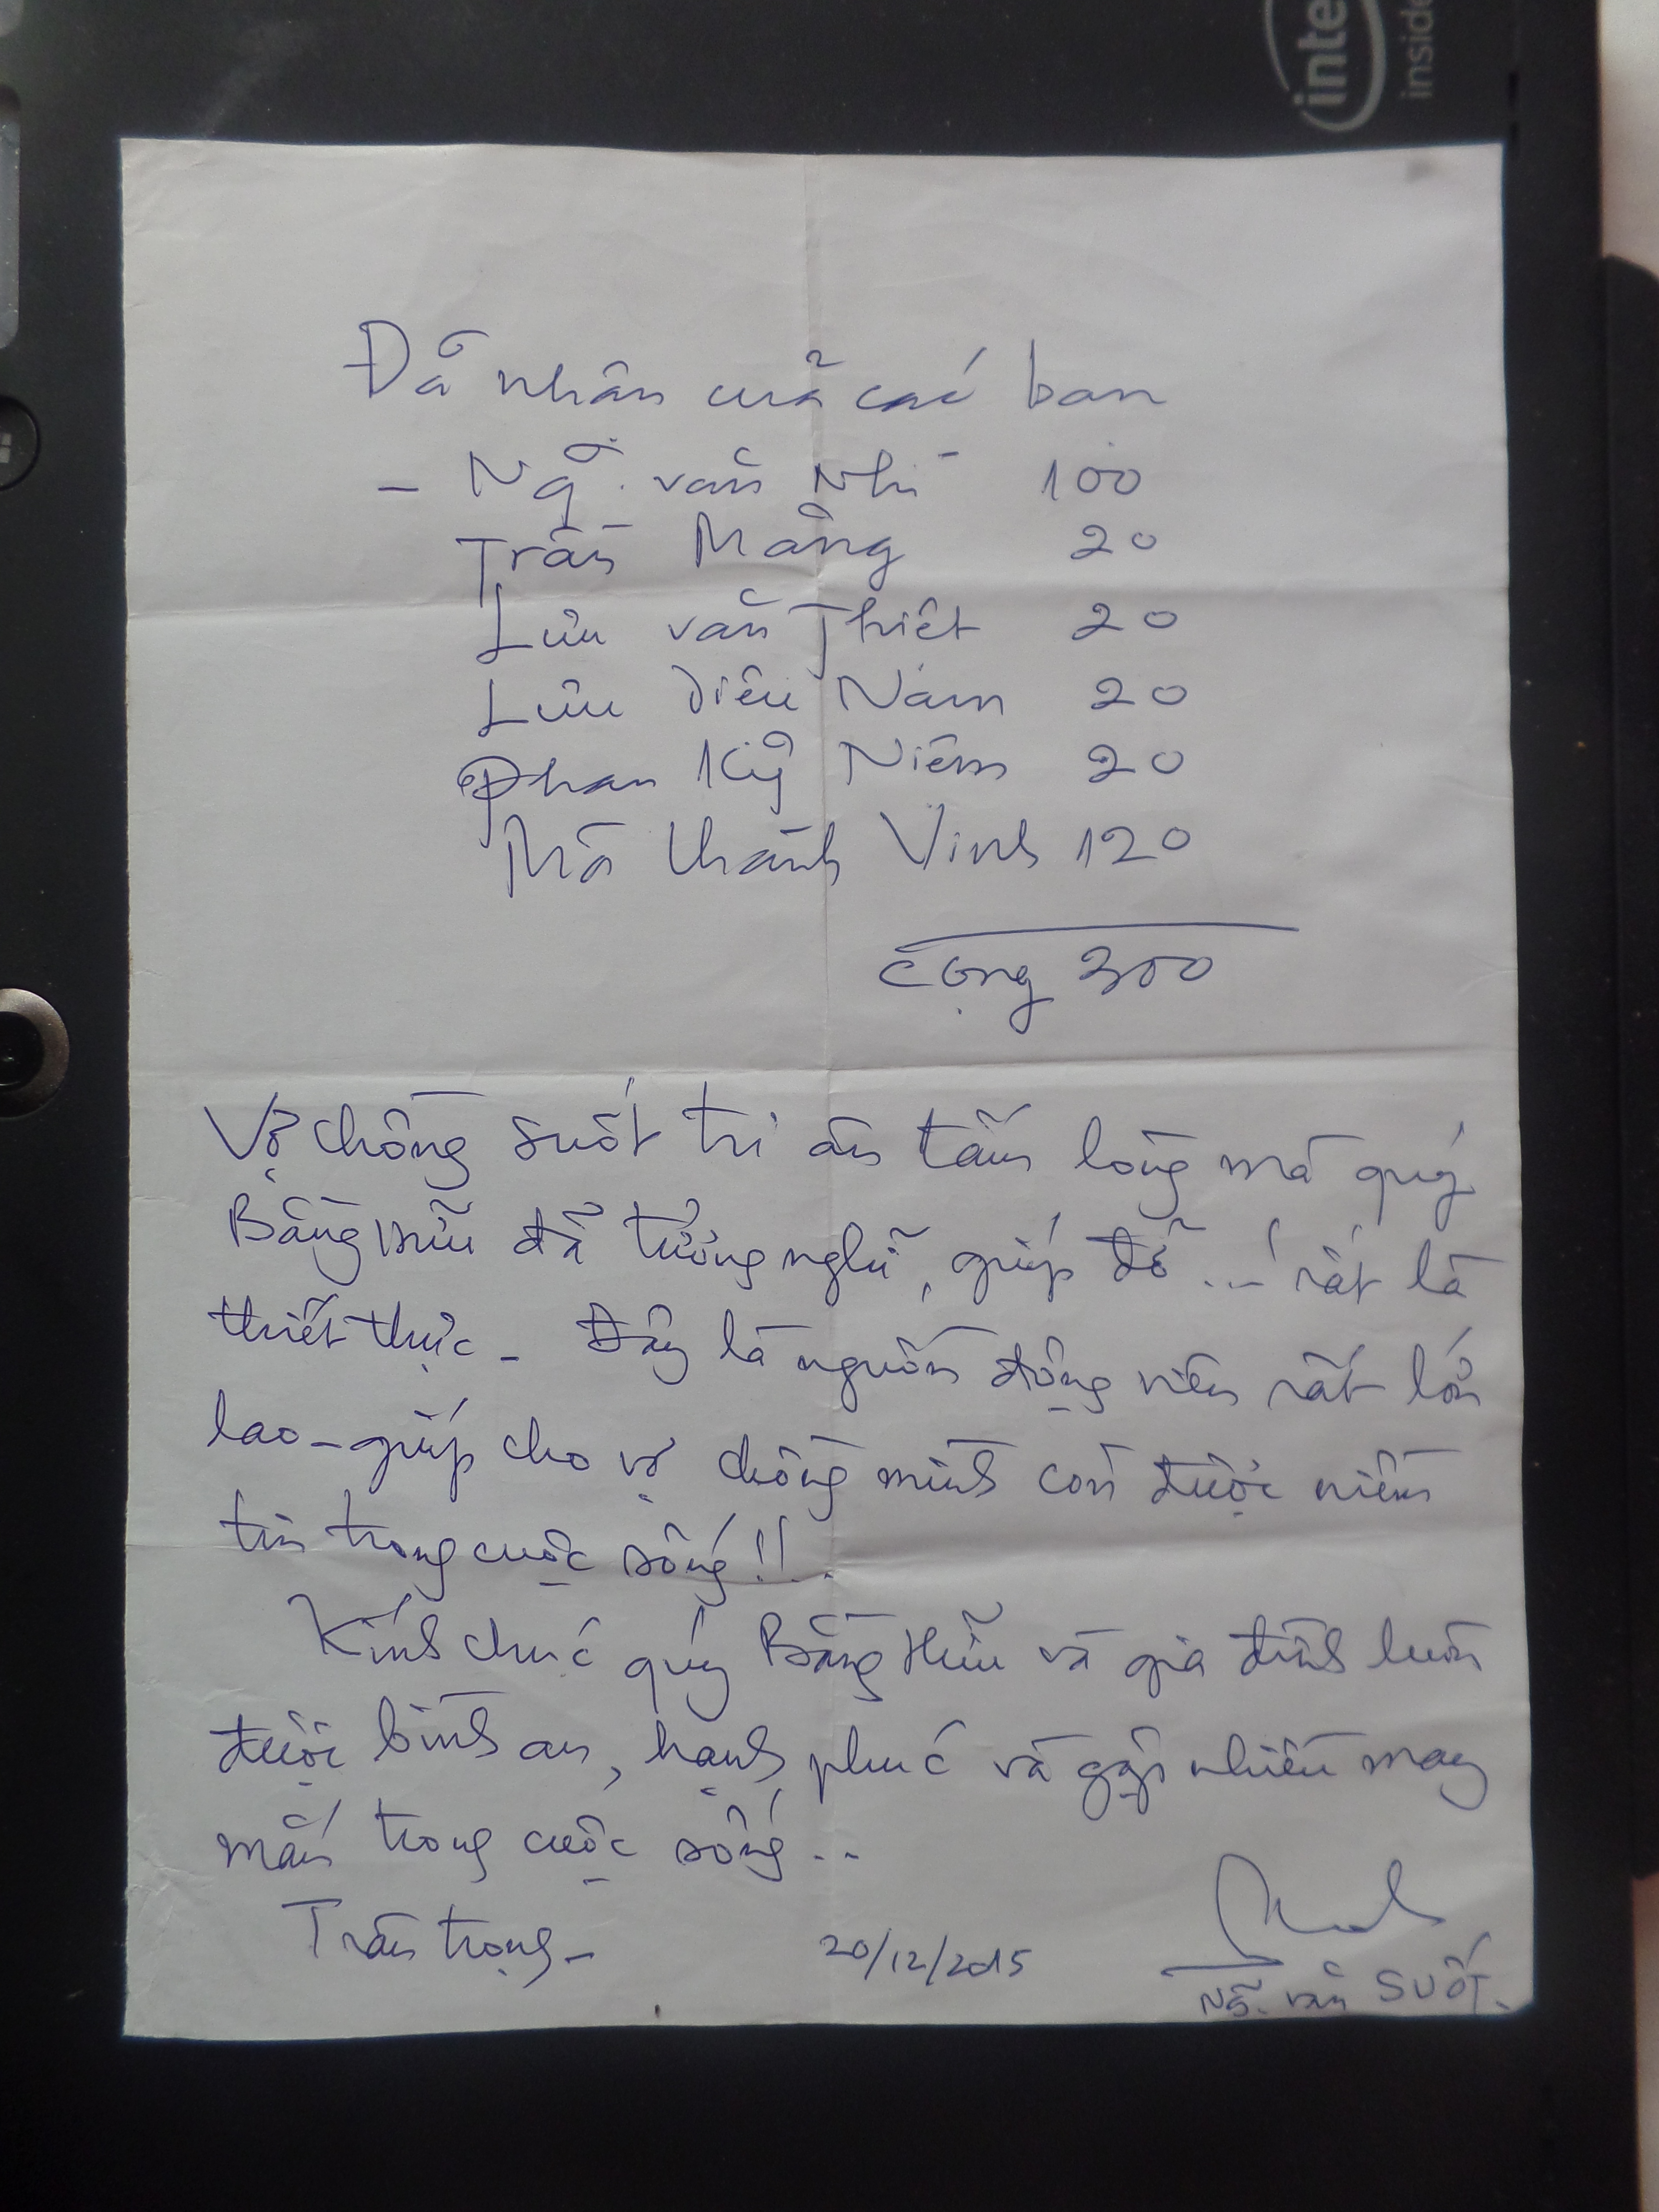 intel
inside
Đã nhận của các bạn
- Ng̃. văn Nhì 100
Trần Mãng 20
Lưu văn Thiết 20
Lưu Diêu Nam 20
Phan Kỹ Niệm 20
Mã thành Vinh 120
Cộng 300
Vợ chồng Suốt tri ân tấm lòng mà quý
Bằng Hữu đã tưởng nghĩ, giúp đỡ ... rất là
thiết thực - Đây là nguồn động viên rất lớn
lao - giúp cho vợ chồng mình còn được niềm
tin trong cuộc sống!!.
Kính chúc quý Bằng Hữu và gia đình luôn
được bình an, hạnh phúc và gặp nhiều may
mắn trong cuộc sống..
Trân trọng -
20/12/2015
Ng̃. văn SUỐT.